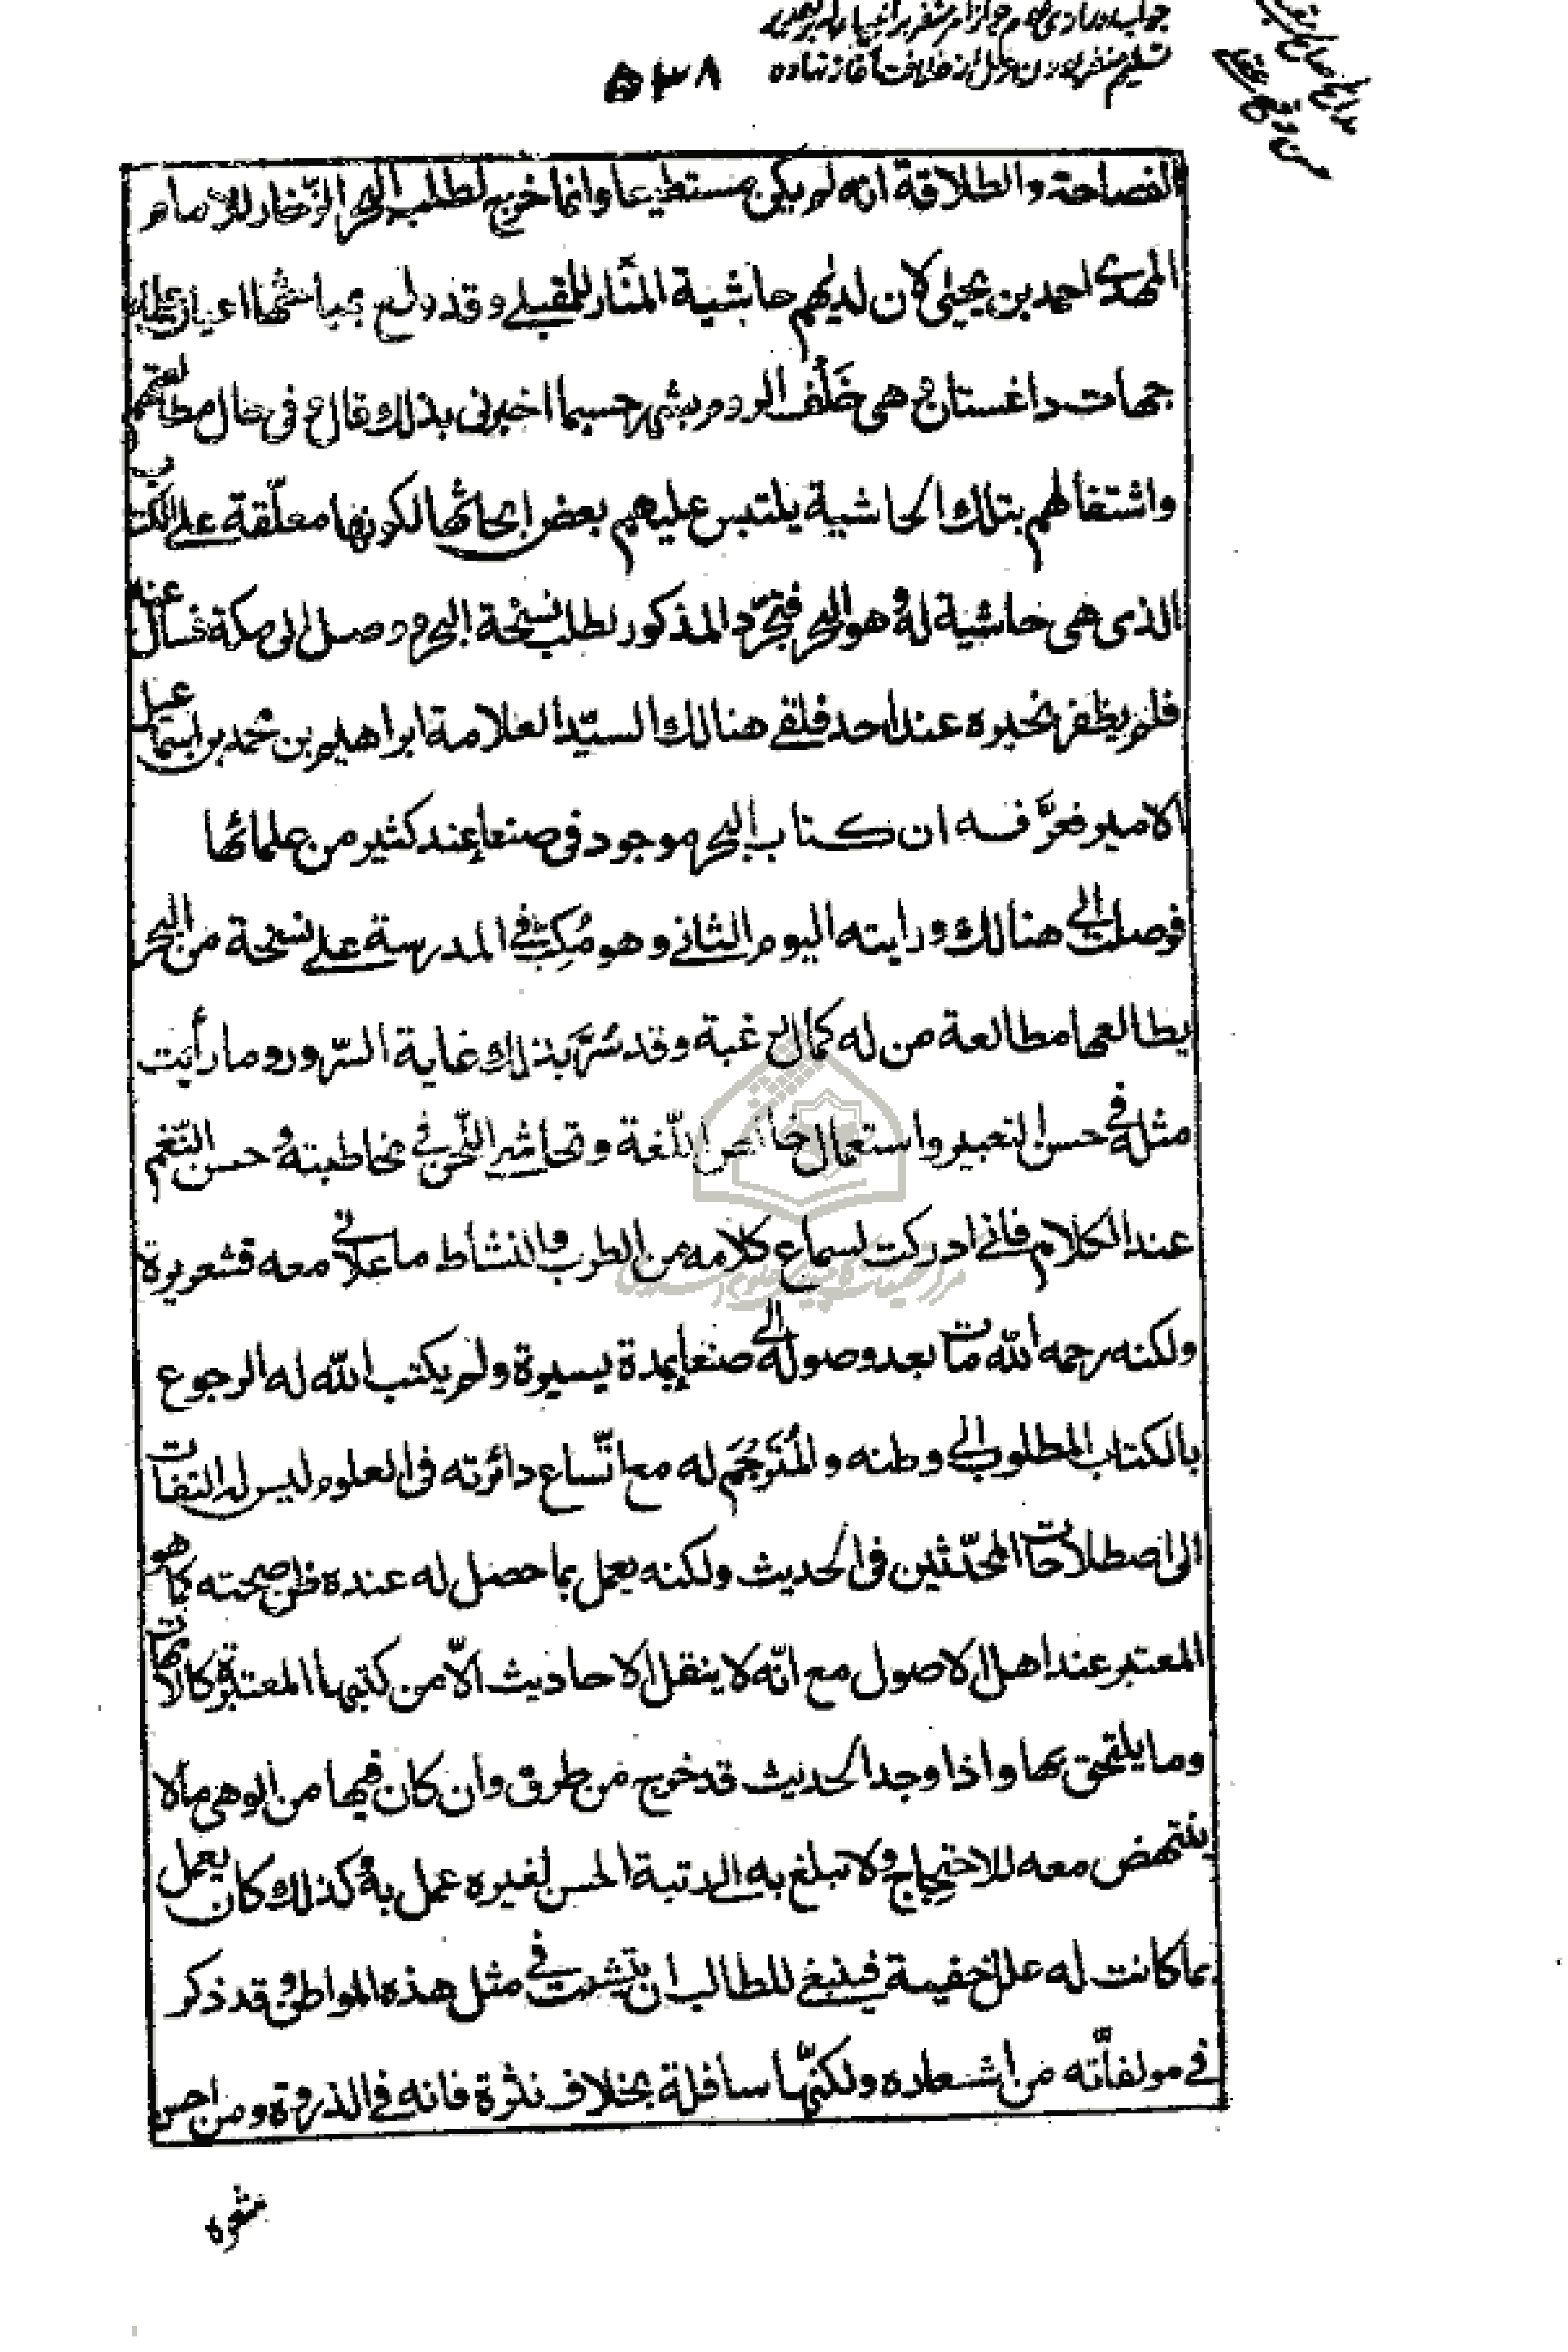 ۵۳۸
الفصاحة والطلاقة انه لم يكن مستطيعا وانما خرج لطلب البحر الزّخار للامام
المهدى احمد بن يحيى كان لديهم حاشية المنّار للمقبلى وقد ولع بمباحثها اعيان علماء
جهات داغستان وهى خَلْف الروم بشهر حسبما اخبرنى بذلك قال وفى حال مطالعتهم
واشتغالهم بتلك الحاشية يلتبس عليهم بعض ابحاثها لكونها معلّقة على الكتاب
الذى هى حاشية له وهو البحر فتجرّد المذكور لطلب نسخة البحر ووصل الى مكة فسأل عنه
فلم يظفر بخبره عند احد فلقى هنالك السيّد العلامة ابراهيم بن محمد بن اسمعيل
الامير فعرَّفه ان كتاب البحر موجود فى صنعاء عند كثير من علمائها
فوصلت الى هنالك ورايته اليوم الثانى وهو مُكِبّ فى المدرسة على نسخة من البحر
يطالعها مطالعة من له كمال رغبة وقد سُرَّ بذلك غاية السّرور وما رأيت
مثله فى حسن التعبير واستعمال خالص اللّغة وتحاشى اللّحن فى مخاطبته وحسن النّغم
عند الكلام فانى ادركت لسماع كلامه من الطرب والنشاط ما علانى معه قشعريرة
ولكنه رحمه الله مات بعد وصوله الى صنعاء بمدة يسيرة ولم يكتب الله له الرجوع
بالكتاب المطلوب الى وطنه والمُتَرجَم له مع اتّساع دائرته فى العلوم ليس له التفات
الى اصطلاحات المحدّثين فى الحديث ولكنه يعمل بما حصل له عنده ظن صحته كما هو
المعتبر عند اهل الاصول مع انّه لا ينقل الاحاديث الّا من كتبها المعتبرة كالامهات
وما يلتحق بها واذا وجد الحديث قد خرج من طرق وان كان فيها من الوهى مالا
ينتهض معه للاحتجاج ولا تبلغ به الى رتبة الحسن لغيره عمل به وكذلك كان يعمل
بما كانت له علل خفيه فينبغى للطالب ان يتثبت فى مثل هذه المواطن وقد ذكر
فى مولفاتّه من اشعاره ولكنّها سافلة بخلاف نثرة فانه فى الذروة ومن احسن
شعره